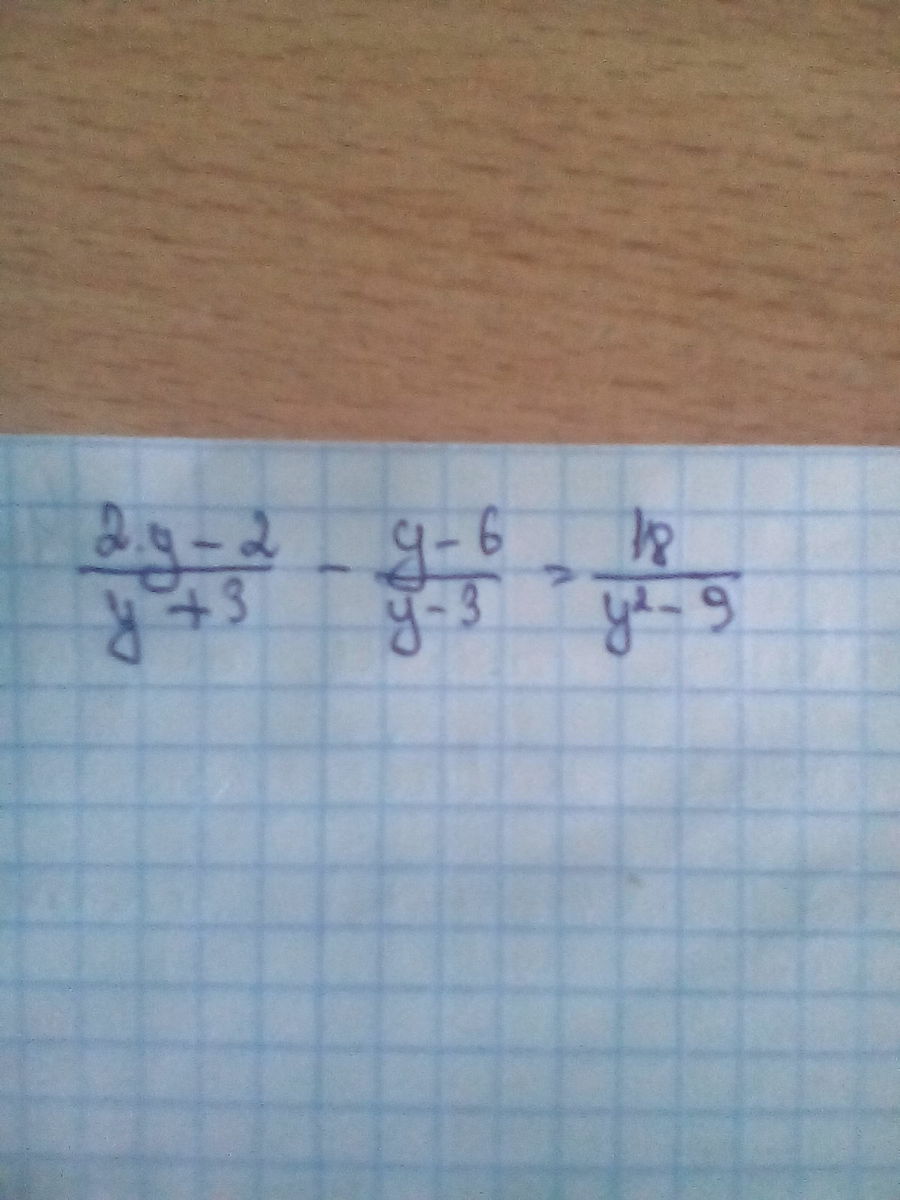 2.y - 2 / y + 3 - y - 6 / y - 3 = 18 / y² - 9